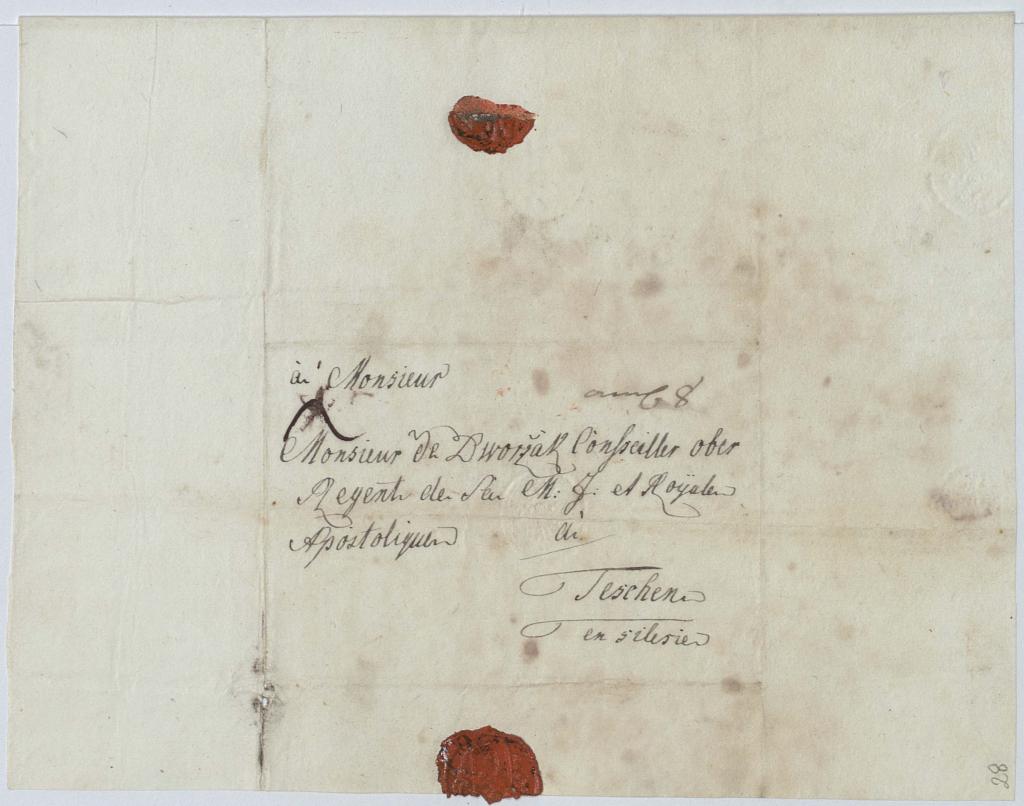 à Monsieur
Monsieur de Dworžak Consseiller ober
Regent de Sa M: J: et Royale
Apostolique à
Teschen
en silesie
28